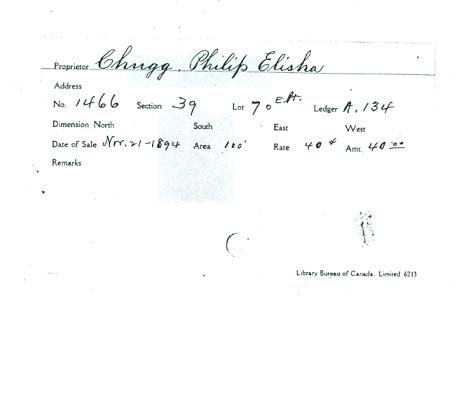 Proprietor Chugg, Philip Elisha
Address
No. 1466 Section 39 Lot 70 E.Pt. Ledger A. 134
Dimension North South East West
Date of Sale Nov. 21-1894 Area 100' Rate 40¢ Amt. 40.00
Remarks
Library Bureau of Canada, Limited 6213